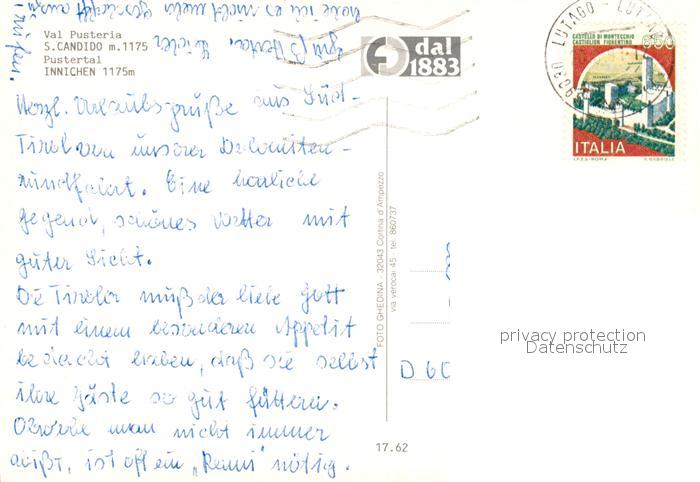 Val Pusteria
S.CANDIDO m.1175
Pustertal
INNICHEN 1175m
dal
1883
Herzl. Urlaubsgrüße aus Süd-
Tirol von unserer Dolomiten-
rundfahrt. Eine herrliche
Gegend, schönes Wetter mit
guter Sicht.
Die Tiroler muß der liebe Gott
mit einem besonderen Appetit
bedacht haben, daß sie selbst
ihre Gäste so gut füttern.
Obwohl man nicht immer
ißt, ist oft ein „Remi" nötig.
habe ich es nicht mehr geschafft
Gruß
rufen.
FOTO GHEDINA - 32043 Cortina d'Ampezzo
via verocai 45 - tel. 860737
17.62
D 60
9030 LUTAGO - LUT
650
CASTELLO DI MONTECCHIO
CASTIGLION FIORENTINO
ITALIA
I.P.Z.S.-ROMA
privacy protection
Datenschutz